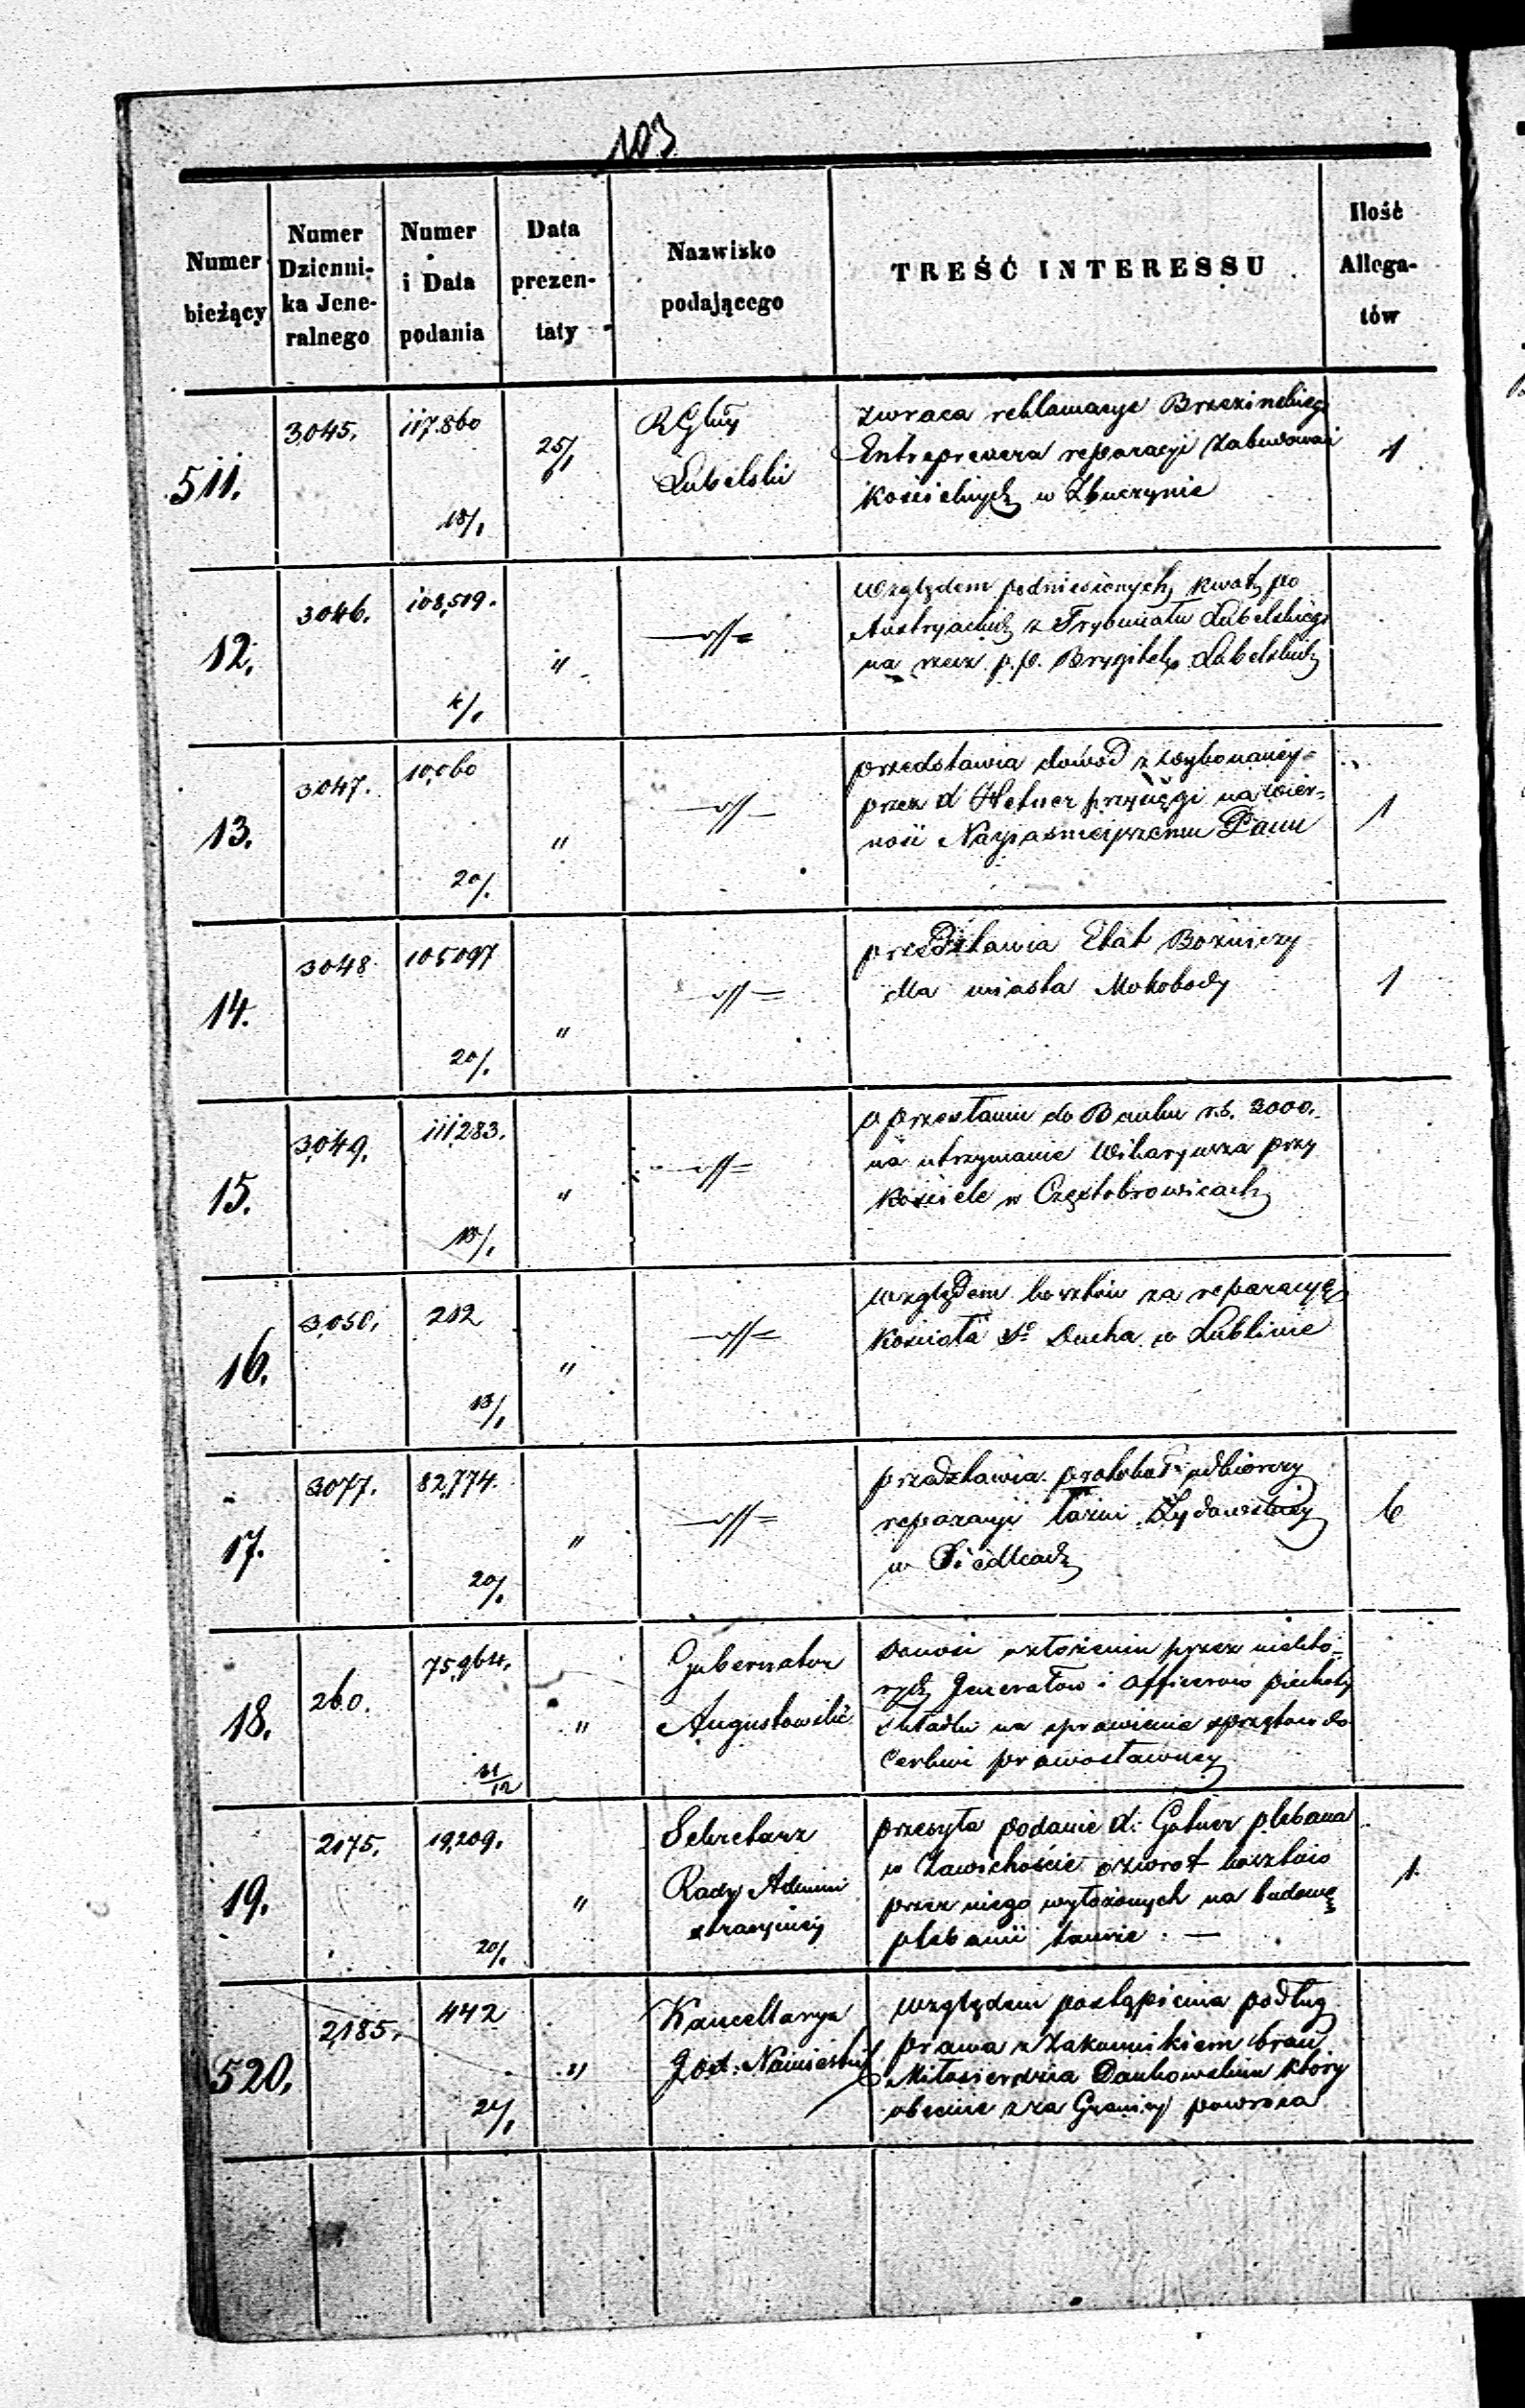 103
Numer bieżący
Numer Dziennika Jeneralnego
Numer i Data podania
Data prezentaty
Nazwisko podającego
TREŚĆ INTERESSU
Ilość Allegatów
511. 3045. 117.860 18/1 25/1 RGłny Lubelski
zwraca reklamacye Brzezinskiego
Entreprenera reparacyi Zabudowań
Kościelnych w Zbuczynie
1
12. 3046. 108,519. 4/1 "
względem podniesionych kwot po
Austryackich z Trybunału Lubelskiego
na rzecz p.p. Brygitek Lubelskich
13. 3047. 10,060 20/1 "
przedstawia dowód z wykonaney
przez d Hetner przysięgi na wier=
ność Nayiaśnieyszemu Panu
1
14. 3048 105097 20/1 "
przedstawia Etat Bożniczy
dla miasta Mokobody
1
15. 3,049. 111,283. 18/1 "
o przesłaniu do Banku r.s. 3000.
na utrzymanie Wikaryusza przy
Kościele w Częstobrowicach
16. 3,050. 212 18/1 "
względem kosztów za reparacyę
Kościoła Sgo Ducha w Lublinie
17. 3077. 82,774. 20/1 "
przedstawia protokoł odbiorczy
reparacyi łaźni Żydowskiey
w Siedlcach
6
18. 260. 75,964. 31/12 " Gubernator Augustowski
Donosi o złożeniu przez niektó=
rych Jenerałow i Officerow piechoty
składki na sprawienie sprzętow do
Cerkwi prawosławney
19. 2175. 19,209. 20/1 " Sekretarz Rady Admini stracyiney
przesyła podanie d: Gatner plebana
w Zawichoście o zwrot kosztów
przez niego wyłożonych na budowę
plebanii tamże. —
1.
520. 2,185. 442 24/1 " Kancellarya JOX: Namiestnika
względem postąpienia podług
prawa z Zakonnikiem braci
Miłosierdzia Dankowskim który
obecnie z za Granicy powraca